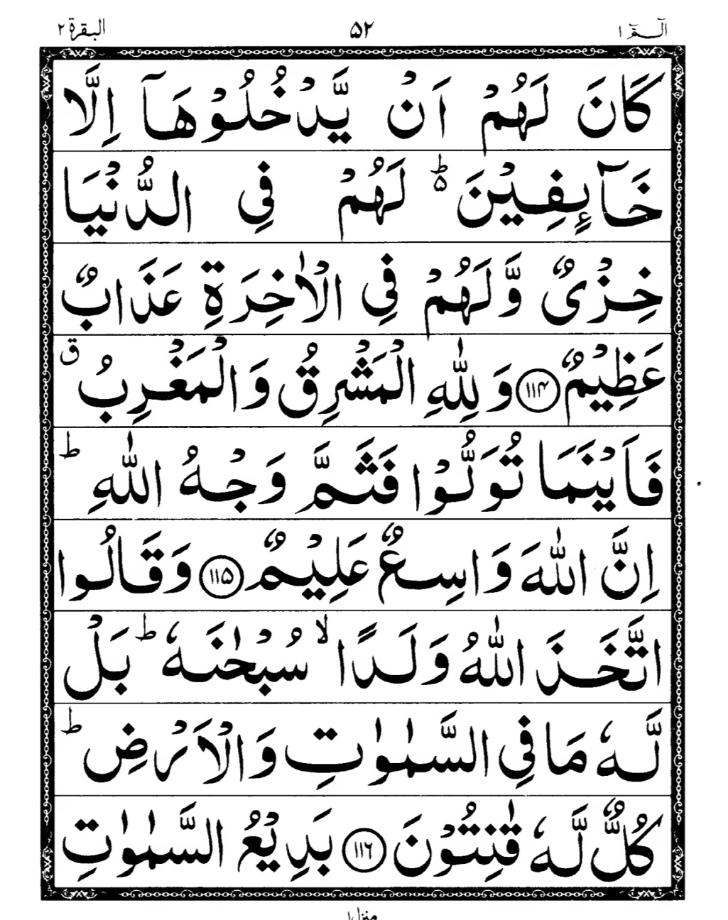 الٓمّٓ ١ ٥٢ البقرة ٢
كَانَ لَهُمْ اَنْ يَّدْخُلُوْهَاۤ اِلَّا
خَآئِفِيْنَ ؕ۬ لَهُمْ فِي الدُّنْيَا
خِزْيٌ وَّلَهُمْ فِي الْاٰخِرَةِ عَذَابٌ
عَظِيْمٌ ﴿۱۱۴﴾ وَ لِلّٰهِ الْمَشْرِقُ وَالْمَغْرِبُ ۗ
فَاَيْنَمَا تُوَلُّوْا فَثَمَّ وَجْهُ اللّٰهِ ؕ
اِنَّ اللّٰهَ وَاسِعٌ عَلِيْمٌ ﴿۱۱۵﴾ وَقَالُوا
اتَّخَذَ اللّٰهُ وَلَدًا ۙ سُبْحٰنَهٗ ؕ بَلْ
لَّهٗ مَا فِي السَّمٰوٰتِ وَالْاَرْضِ ؕ
كُلٌّ لَّهٗ قٰنِتُوْنَ ﴿۱۱۶﴾ بَدِيْعُ السَّمٰوٰتِ
منزل ١